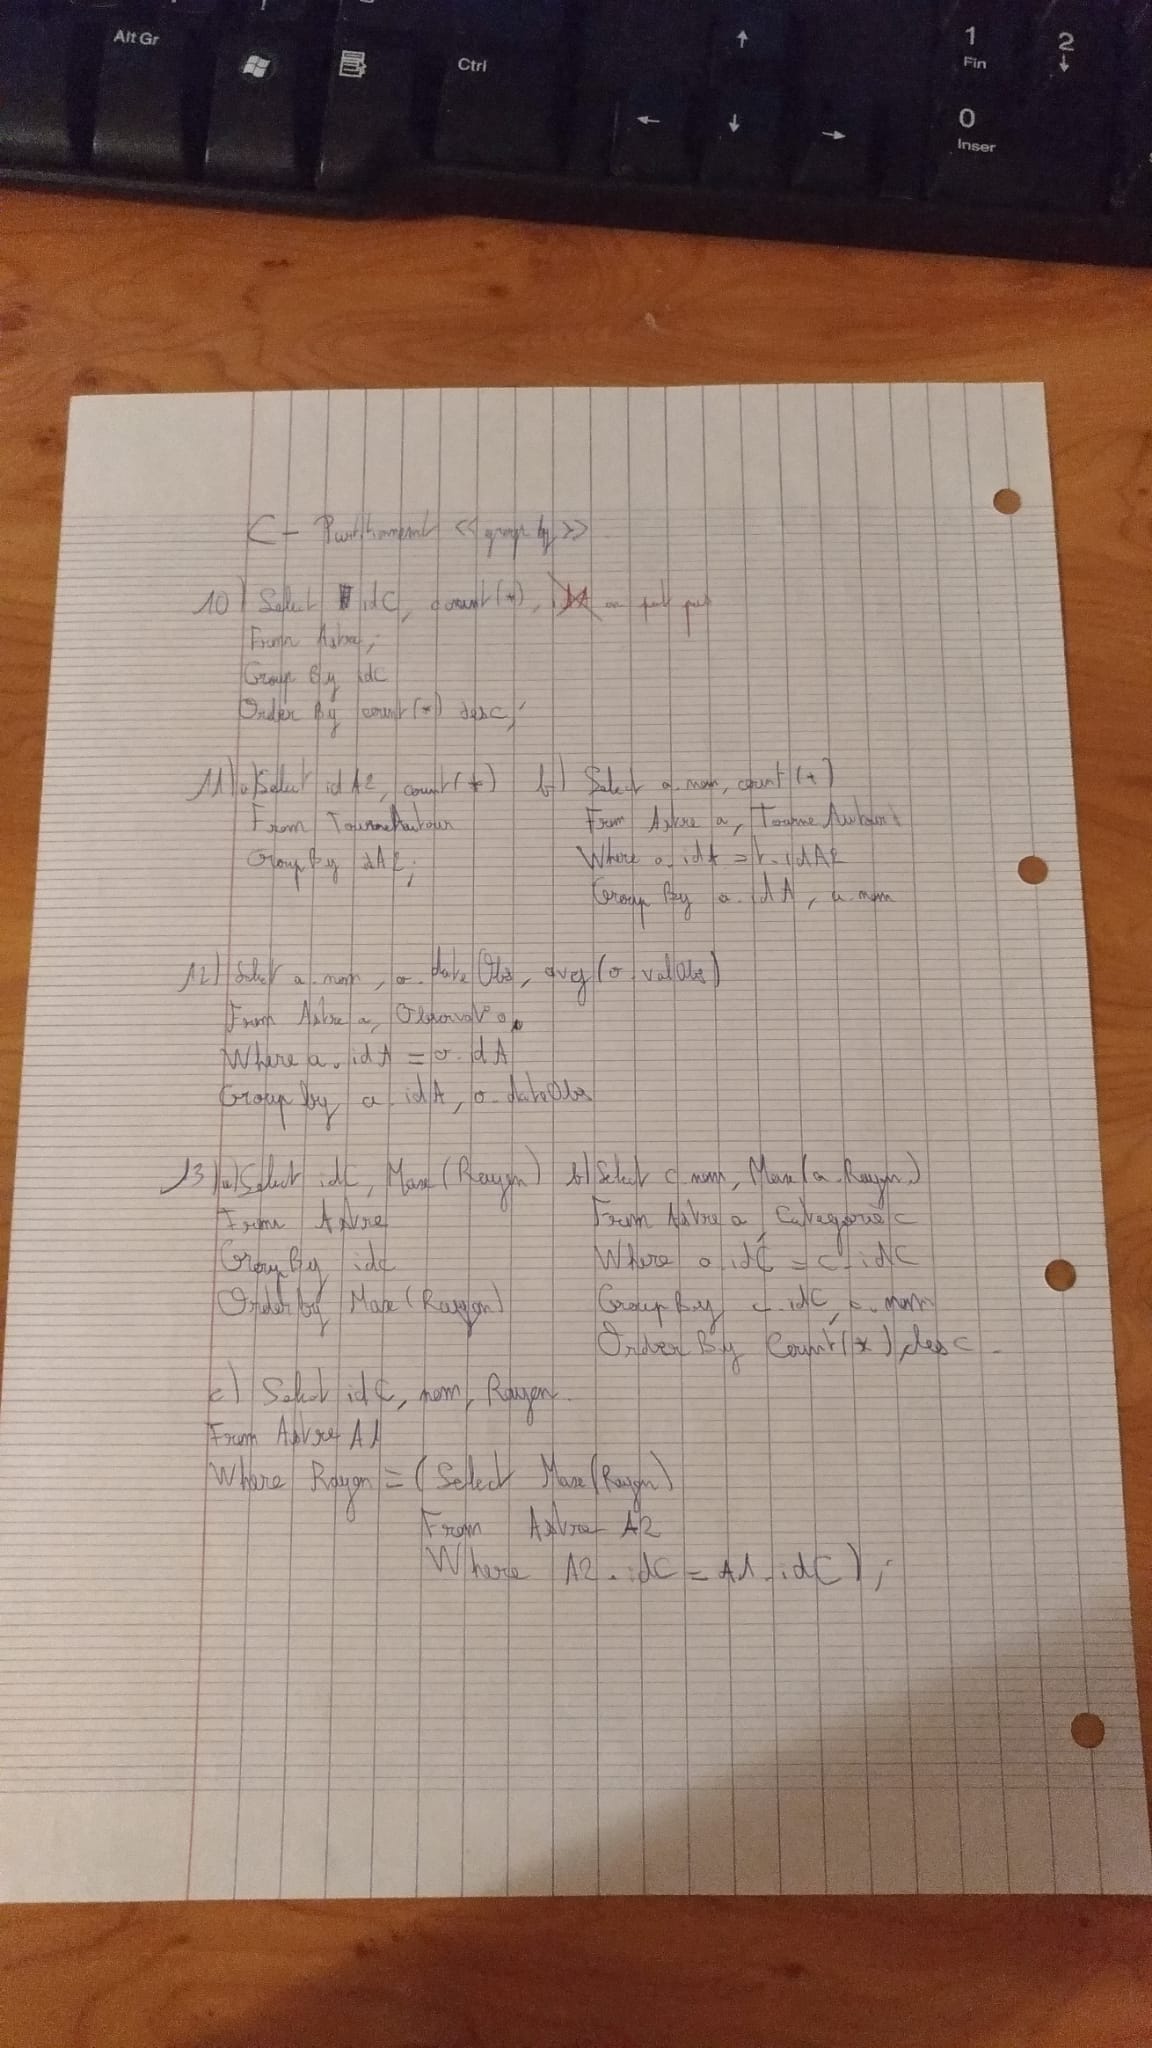 Alt Gr
Ctrl
1
Fin
2
0
Inser
C - << group by >>
10) Select idC, count(*), on peut pas
From Astre;
Group By idC
Order By count(*) desc;
11) a) Select idA2, count(*)
From TourneAutour
Group By idA2;
b) Select a.nom, count(*)
From Astre a, TourneAutour t
Where a.idA = t.idA2
Group By a.idA, a.nom
12) Select a.nom, o.dateObs, avg(o.valObs)
From Astre a, o
Where a.idA = o.idA
Group by a.idA, o.dateObs
13) a) Select idC, Max(Rayon)
From Astre
Group By idC
Order by Max(Rayon)
b) Select c.nom, Max(a.Rayon)
From Astre a, Categorie c
Where a.idC = c.idC
Group By c.idC, c.nom
Order By Count(*) desc
c) Select idC, nom, Rayon
From Astre A1
Where Rayon = (Select Max(Rayon)
From Astre A2
Where A2.idC = A1.idC);